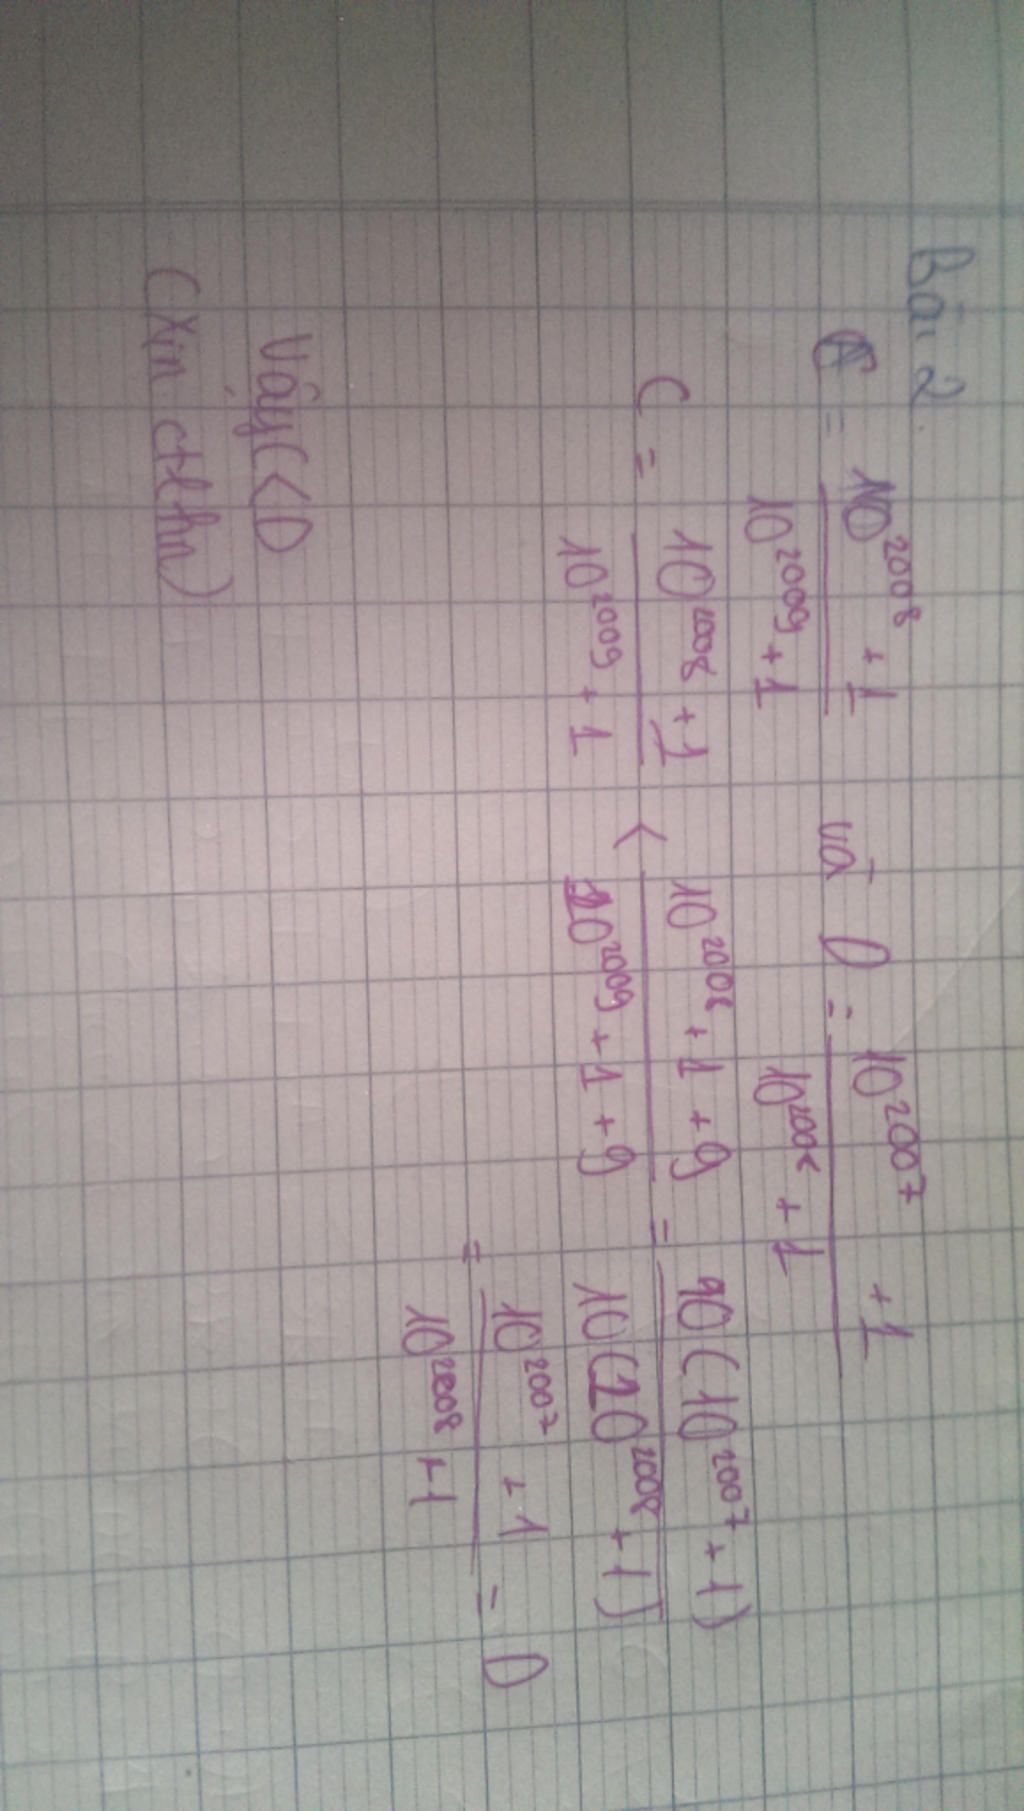 Bài 2.
C = 10^2008 + 1 / 10^2009 + 1 và D = 10^2007 + 1 / 10^2008 + 1
C = 10^2008 + 1 / 10^2009 + 1 < 10^2008 + 1 + 9 / 10^2009 + 1 + 9 = 10(10^2007 + 1) / 10(20^2008 + 1)
= 10^2007 + 1 / 10^2008 + 1 = D
Vậy C < D
(xin ctlhn)